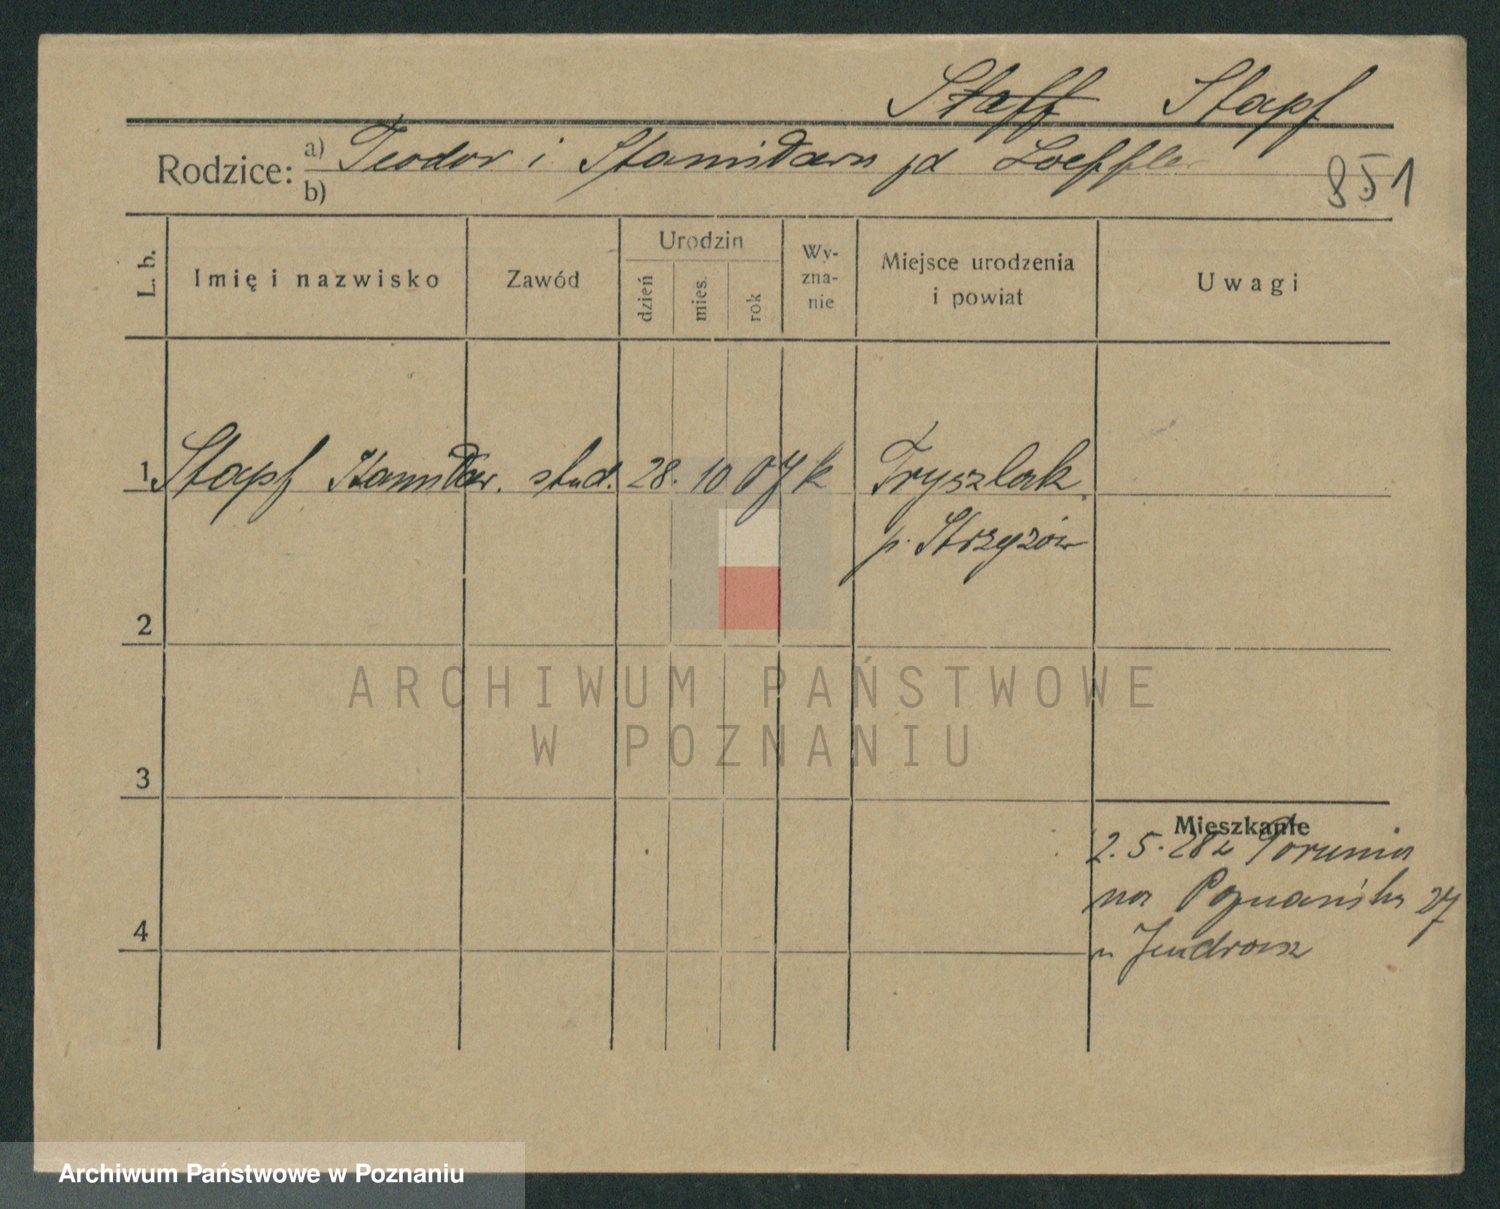 Staff Stapf
Rodzice: a) Teodor i Stanisława zd Loeffler
b)
851
L. b.
Imię i nazwisko
Zawód
Urodzin
dzień
mies.
rok
Wy-
zna-
nie
Miejsce urodzenia
i powiat
Uwagi
1 Stapf Stanisław. stud. 28. 10 07 k Fryszlak
p. Strzyżów
2
ARCHIWUM PAŃSTWOWE
W POZNANIU
3
Mieszkanie
2.5.28 z Torunia
na Poznańska 27
u
4
Archiwum Państwowe w Poznaniu